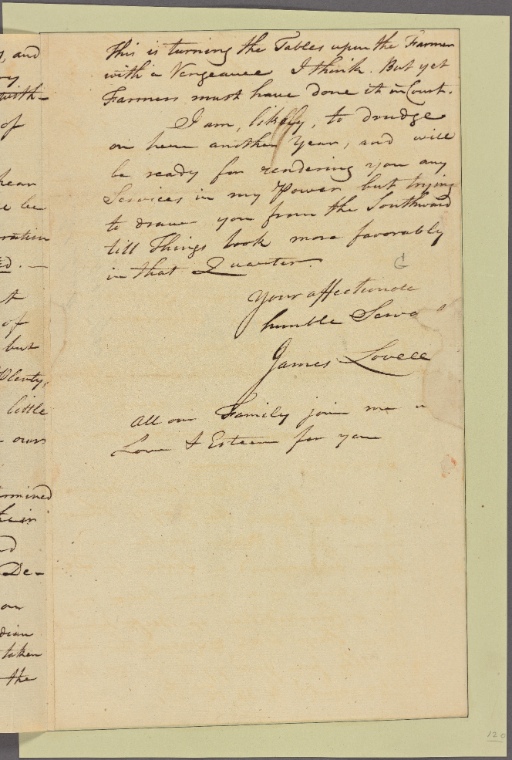 s, and
of
hear
be
of
but
Plenty,
little
ours
De-
on
taken
the
This is turning the Tables upon the Farmer
with a Vengeance I think. But yet
Farmers must have done it in Court.
I am, likely, to drudge
on here another Year, and will
be ready for rendering you any
Services in my Power but trying
to draw you from the Southward
till Things look more favorably
in that Quarter.
Your affectionate
humble Serva
James Lovell
All our Family join me
Love & Esteem for you
120